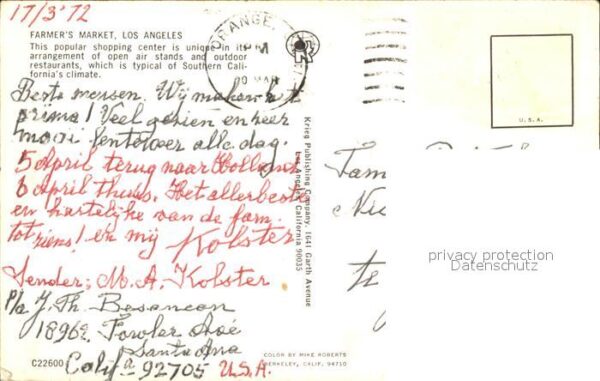 17/3'72
FARMER'S MARKET, LOS ANGELES
This popular shopping center is unique in its
arrangement of open air stands and outdoor
restaurants, which is typical of Southern Cali-
fornia's climate.
ORANGE,
PM
MAR
Beste mensen. Wij maken het
prima! Veel gezien en heer
mooi lenteweer alle dag.
5 April terug naar Holland
6 April thuis. Het allerbeste
en hartelijke van de fam.
tot ziens! en mij Kolster
Sender: M. A. Kolster
P/a J. Th. Besancon
18962. Fowler Ave
Santa Ana
Calif a 92705 U.S.A.
C22600
Krieg Publishing Company, 1641 Garth Avenue
Los Angeles, California 90035
COLOR BY MIKE ROBERTS
BERKELEY, CALIF. 94710
U.S.A.
Fam
privacy protection
Datenschutz